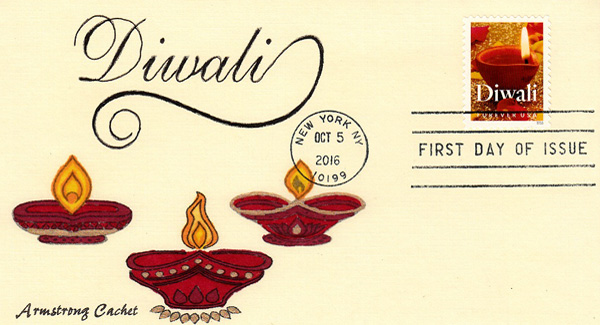 Diwali
Diwali
FOREVER USA
NEW YORK NY
OCT 5
2016
10199
FIRST DAY OF ISSUE
Armstrong Cachet